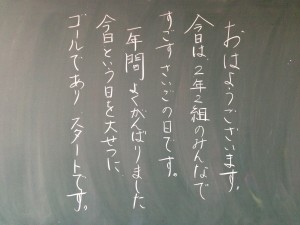 おはようございます。
今日は、2年2組のみんなで
すごすさいごの日です。
一年間よくがんばりました
今日という日を大せつに
ゴールであり スタートです。